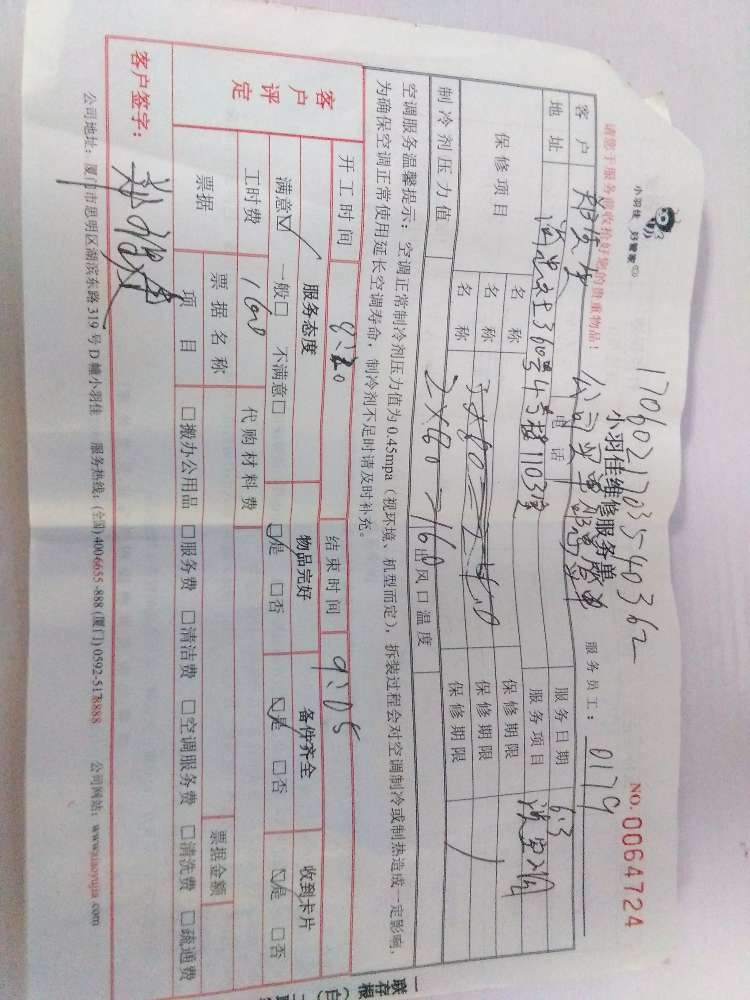 小羽佳 好管家
1706021703540362
小羽佳维修服务单
NO.0064724
请您于服务前收拾好您的贵重物品！
服务员工：0179
客户
公司
服务日期 6.3
地址 360号4号楼1103室
电话
服务项目 洗空调
保修项目 名称 保修期限
名称 保修期限
名称 2×80=160 保修期限
制冷剂压力值
出风口温度
空调服务温馨提示：空调正常制冷剂压力值为0.45mpa（视环境、机型而定），拆装过程会对空调制冷或制热造成一定影响，
为确保空调正常使用延长空调寿命，制冷剂不足时请及时补充。
开工时间 8:20 结束时间 9:05
客户评定
服务态度 物品完好 备件齐全 收到卡片
满意☑ 一般□ 不满意□ ☑是 □否 ☑是 □否 ☑是 □否
工时费 160 代购材料费
票据 票据名称 票据金额
项目 □搬办公用品 □服务费 □清洁费 □空调服务费 □清洗费 □疏通费
客户签字：
公司地址：厦门市思明区湖滨东路319号D幢小羽佳 服务热线：(全国)4006655-888 (厦门)0592-5178888 公司网站：www.xiaoyujia.com